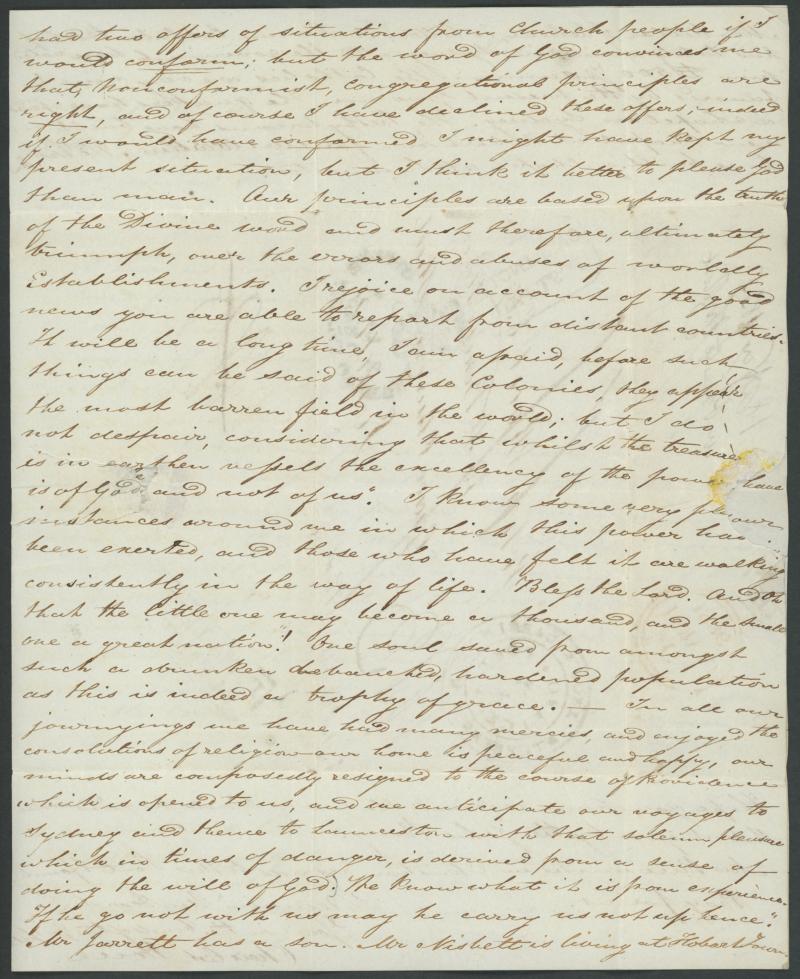 had two offers of situations from Church people if I
would conform; but the word of God convinces me
that, Nonconformist, congregational principles are
right, and of course I have declined these offers, indeed
if I would have conformed I might have kept my
present situation, but I think it better to please God
than man. Our principles are based upon the truth
of the Divine word and must therefore, ultimately
triumph, over the errors and abuses of worldly
Establishments. I rejoice on account of the good
news you are able to report from distant countries.
It will be a long time, I am afraid, before such
things can be said of these Colonies, they appear
the most barren field in the world; but I do
not despair, considering that whilst the treasure
is in earthen vessels the excellency of the power
is of God "and not of us". I know some very
instances around me in which this power has
been exerted, and those who have felt it are walking
consistently in the way of life. Bless the Lord. And Oh
that the little one may become a thousand, and the small
one a great nation"! One soul saved from amongst
such a drunken debauched, hardened population
as this is indeed a trophy of grace. — In all our
journeyings we have had many mercies, and enjoyed the
consolations of religion — our home is peaceful and happy, our
minds are composedly resigned to the course of Providence
which is opened to us, and we anticipate our voyages to
Sydney and thence to Launceston with that solemn pleasure
which in times of danger, is derived from a sense of
doing the will of God. We know what it is from experience.
"If he go not with us may he carry us not up hence."
Mr Jarrett has a son. Mr Nisbett is living at Hobart Town.